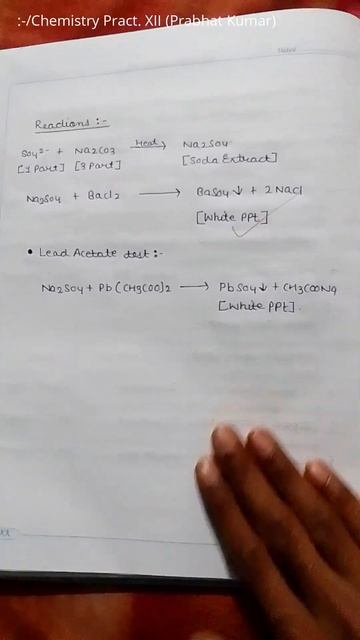 :-/Chemistry Pract. XII (Prabhat Kumar)
Reactions :-
SO4²⁻ + Na2CO3 —Heat→ Na2SO4
[1 Part] [3 Part] [Soda Extract]
Na2SO4 + BaCl2 → BaSO4↓ + 2NaCl
[White PPt]
• Lead Acetate test :-
Na2SO4 + Pb(CH3COO)2 → PbSO4↓ + CH3COONa
[White PPt].